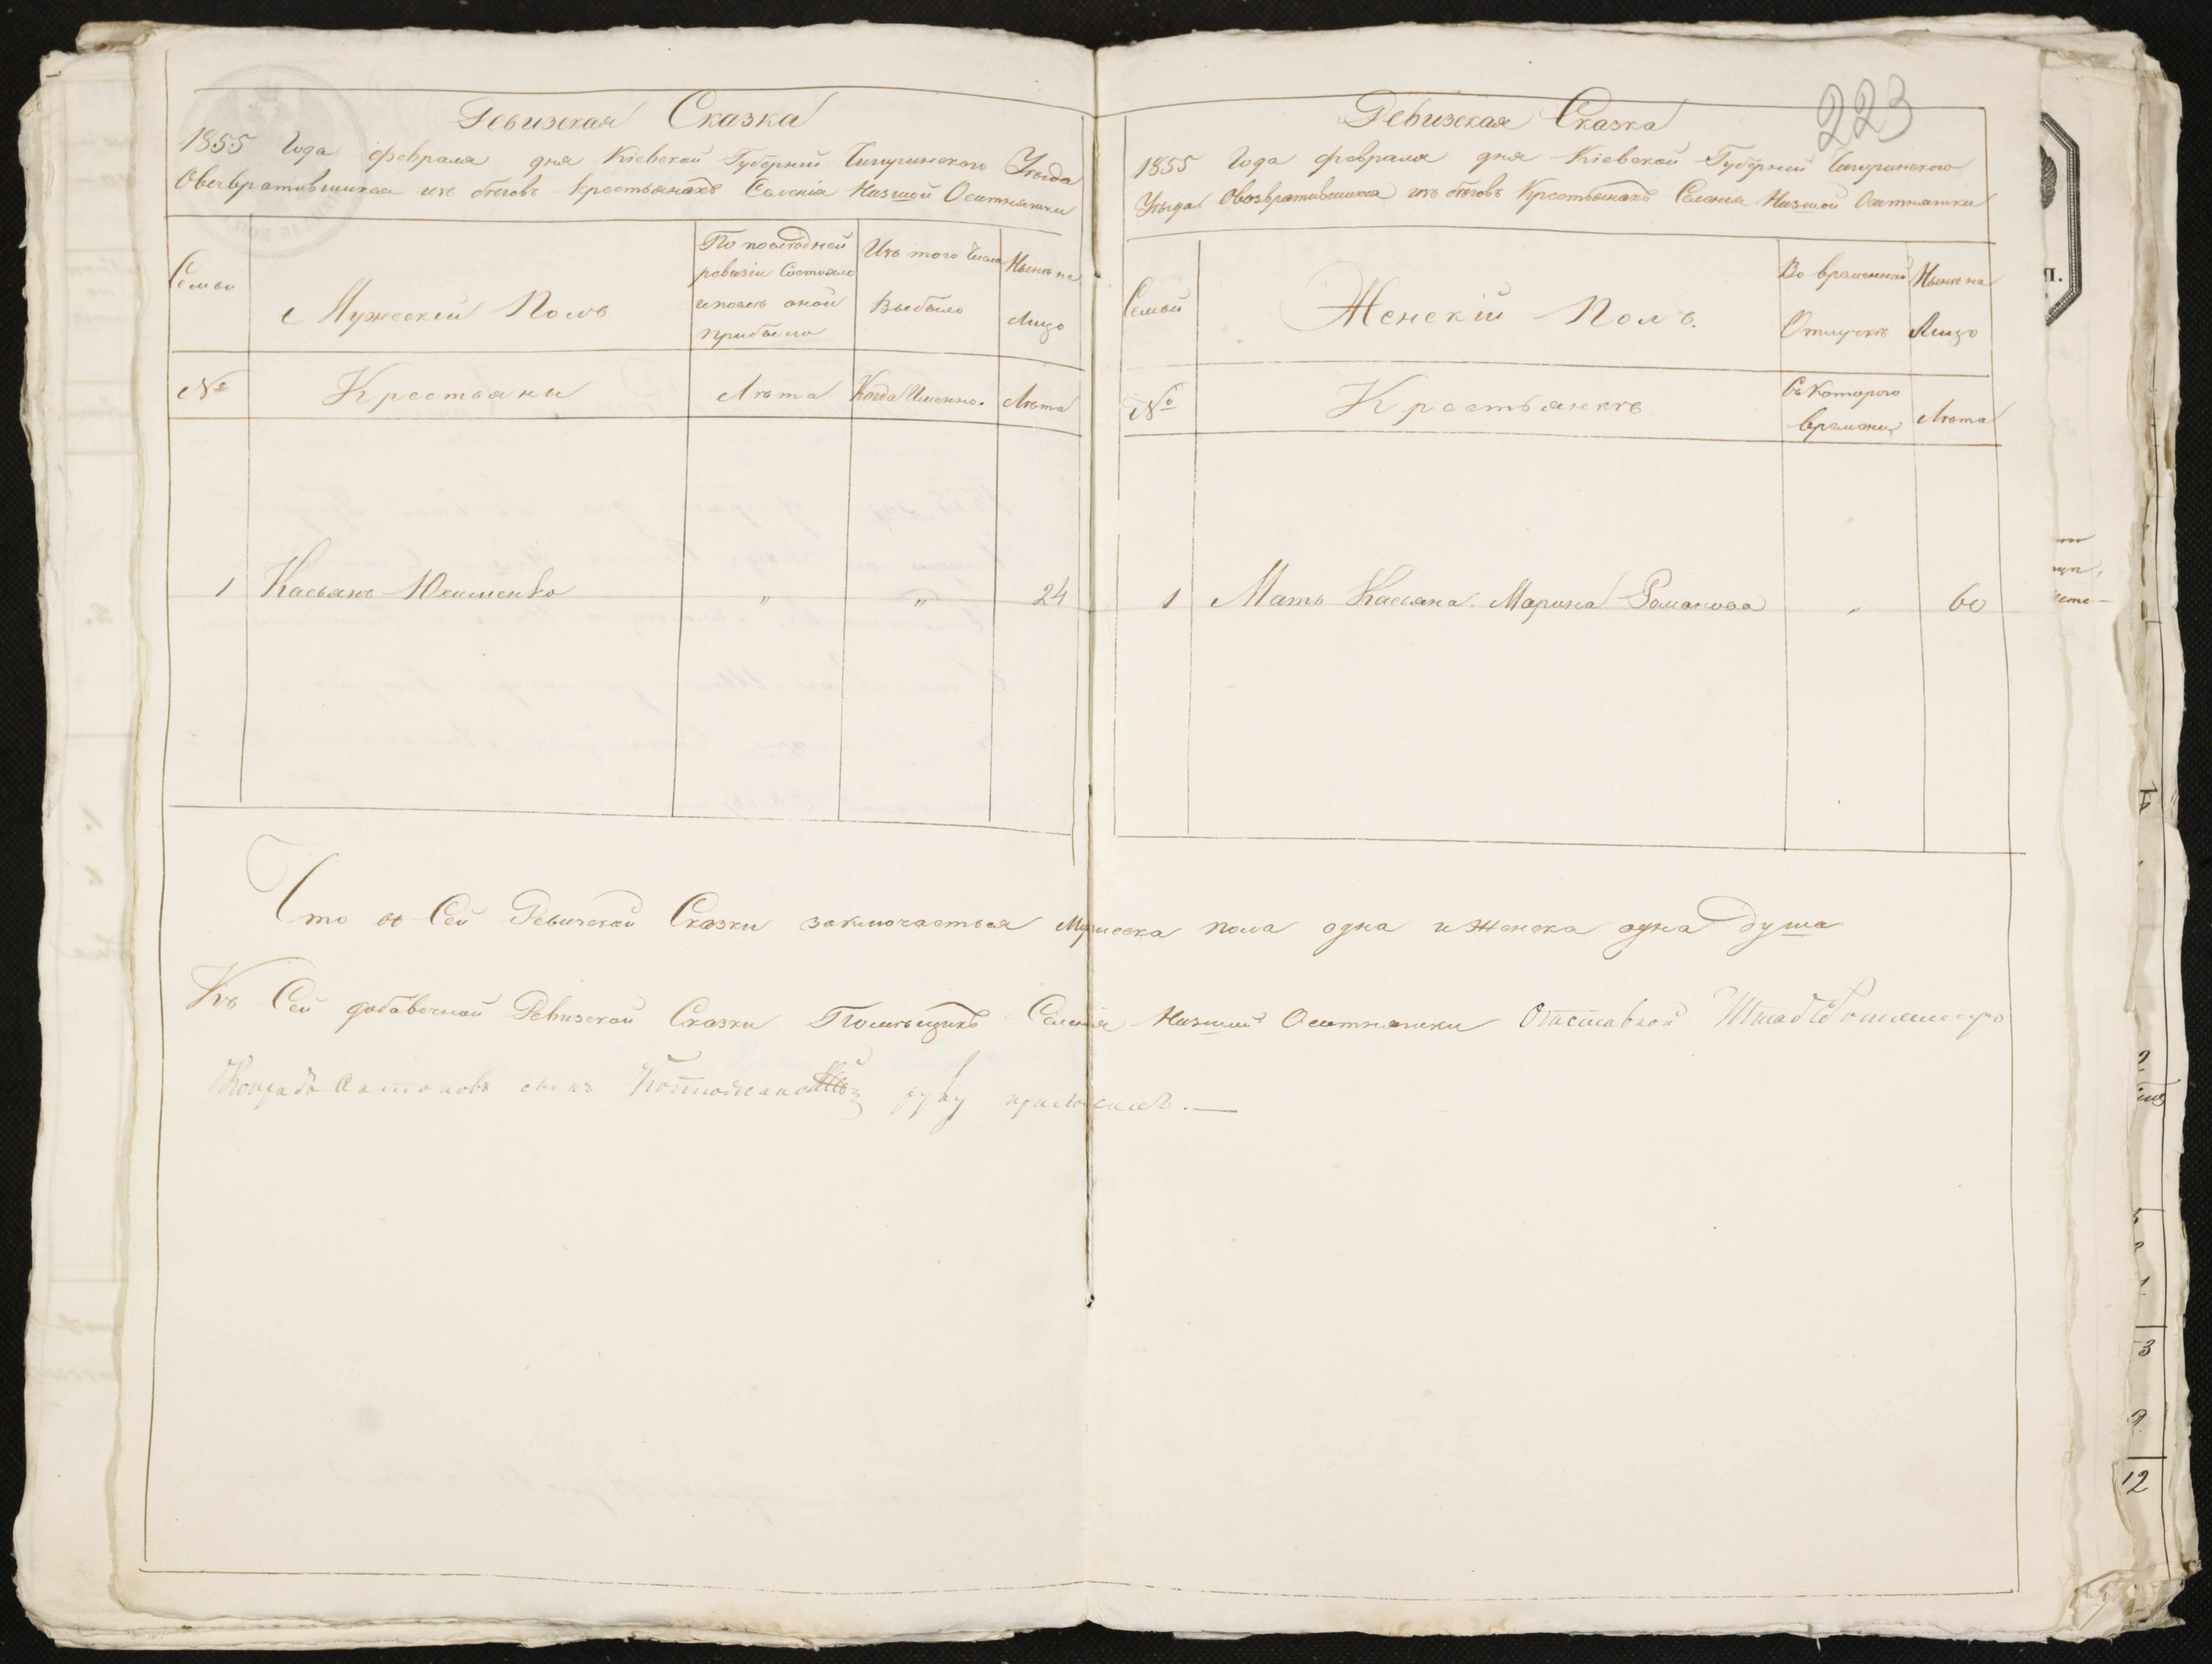 223
Ревизская Сказка
1855 Года февраля дня Кіевской Губерніи Чигиринского Уѣзда
Овозвратившихся изъ бѣговъ Крестьянахъ Селенія Низшой Оситняжки
Семьи
Мужескій Полъ
По последней
ревизіи Состояло
и после оной
прибыло
Изъ того Числа
Выбыло
Нынѣ на
Лицо
№
Крестьяны
Лѣта
Когда Именно.
Лѣта
1 Касьянъ Юхименко " " 24
Ревизская Сказка
1855 Года февраля дня Кіевской Губерніи Чигиринского
Уѣзда Овозвратившихся изъ бѣговъ Крестьянахъ Селенія Низшой Оситняжки
Семьи
Женскій Полъ.
Во временной
Отлучкѣ
Нынѣ на
Лицо
№
Крестьянкѣ
Съ Которого
времени
Лѣта
1 Мать Касьяна Марина Романова " 60
Что въ Сей Ревизской Сказки заключаеться Мужеска пола одна и Женска одна душа
Къ Сей добавочной Ревизской Сказки Помѣщикъ Селенія Низшой Оситняжки Отставной Штабъ Ротмистръ
Антоновъ сынъ руку приложилъ. —
3
12